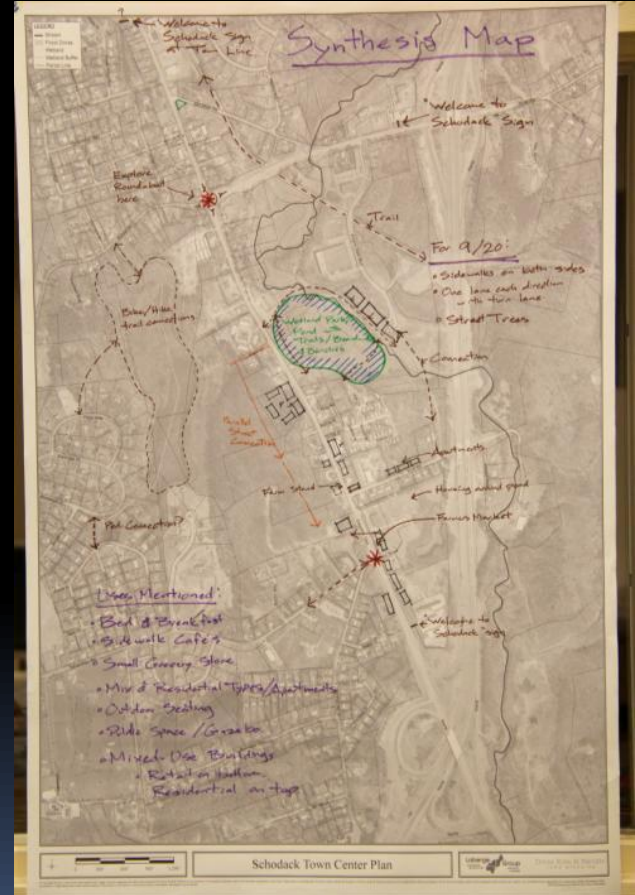 LEGEND
Stream
Wetland
Wetland Buffer
Parcel Line
?
"Welcome to
Schodack Sign
at Town Line
Synthesis Map
"Welcome to
Schodack" Sign
Explore
Roundabout
here
Trail
For 9/20:
• Sidewalks on both sides
• One lane each direction
with turn lane
• Street Trees
Bike/Hike/
trail connections
Wetland Park/
Pond with
Trails/
Benches
Connection
Parallel
Street
Connection
Apartments
Farm Stand
Housing around pond
Farmers Market
Ped Connection?
"Welcome to
Schodack" sign
Uses Mentioned:
• Bed & Breakfast
• Sidewalk Cafes
• Small Grocery Store
• Mix of Residential Types/Apartments
• Outdoor Seating
• Public Space/Gazebo
• Mixed-Use Buildings
• Retail on bottom
Residential on top
Schodack Town Center Plan
Laberge Group